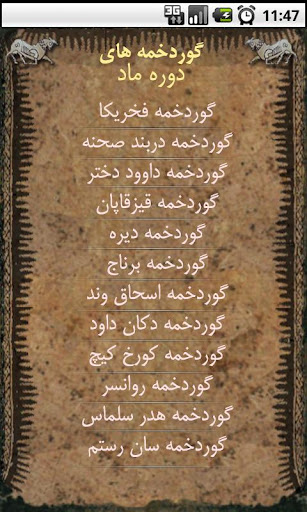 3G 11:47
گوردخمه های
دوره ماد
گوردخمه فخریکا
گوردخمه دربند صحنه
گوردخمه داوود دختر
گوردخمه قیزقاپان
گوردخمه دیره
گوردخمه برناج
گوردخمه اسحاق وند
گوردخمه دکان داود
گوردخمه کورخ کیچ
گوردخمه روانسر
گوردخمه هدر سلماس
گوردخمه سان رستم